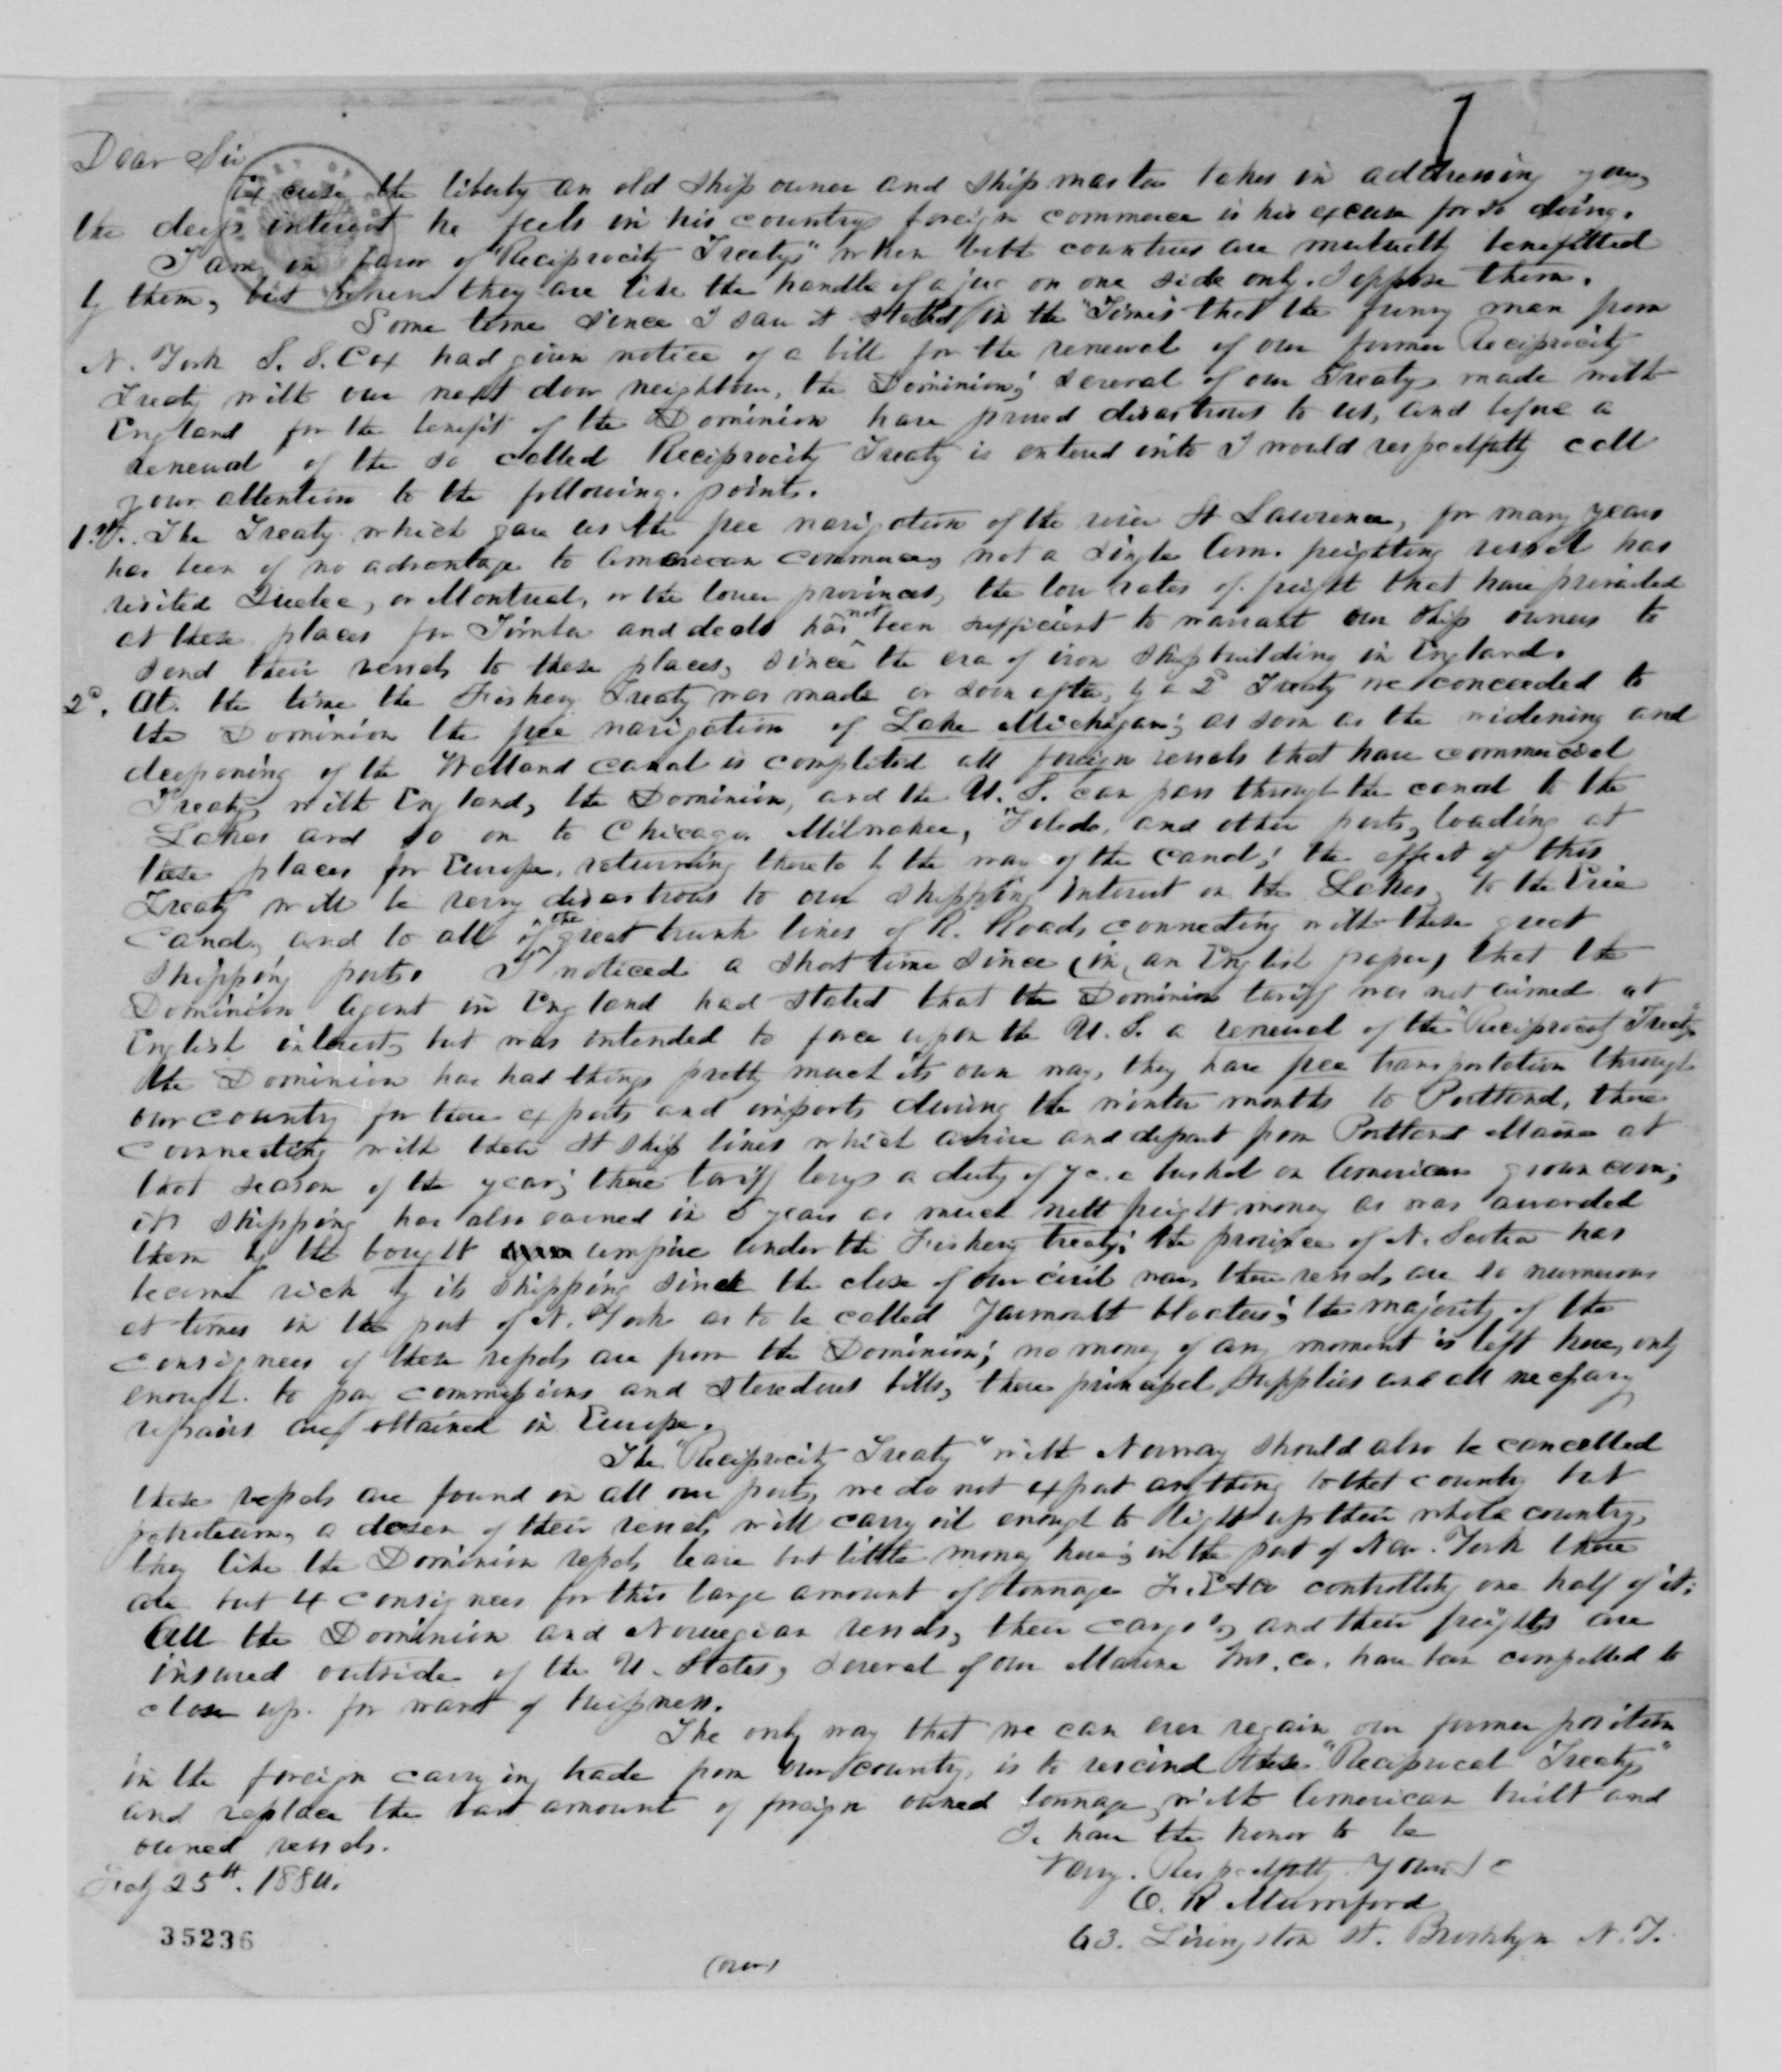 Dear Sir
Excuse the liberty an old ship owner and ship master takes in addressing you,
the deep interest he feels in his countrys foreign commerce is his excuse for so doing.
I am in favor of "Reciprocity Treatys" when both countries are mutually benefitted
by them, but when they are like the handle of a jug on one side only. I oppose them.
Some time since I saw it stated in the "Times" that the funny man from
N. York S. S. Cox had given notice of a bill for the renewal of our former Reciprocity
Treaty with our next door neighbour, the Dominion; several of our Treatys made with
England for the benefit of the Dominion have proved disastrous to us, and before a
renewal of the so called Reciprocity Treaty is entered into I would respectfully call
your attention to the following points.
1st. The Treaty which gave us the free navigation of the river St Lawrence, for many years
has been of no advantage to American commerce, not a single Am. freighting vessel has
visited Quebec, or Montreal, or the lower provinces, the low rates of freight that have prevailed
at these places for Timber and deals has not been sufficient to warrant our ship owners to
send their vessels to these places, since the era of iron ship building in England.
2d. At the time the Fishery Treaty was made or soon after, by a 2d Treaty we conceeded to
the Dominion the free navigation of Lake Michigan; as soon as the widening and
deepening of the Welland canal is completed all foreign vessels that have commercial
Treatys with England, the Dominion, and the U. S. can pass through the canal to the
Lakes and so on to Chicago, Milwakee, Toledo, and other ports, loading at
these places for Europe, returning thereto by the way of the canal; the effect of this
Treaty will be very disastrous to our shipping interest on the Lakes, to the Erie
Canal, and to all of the great trunk lines of R. Roads connecting with these great
shipping ports. I noticed a short time since (in an English paper) that the
Dominion agent in England had stated that the Dominion tariff was not aimed at
English interests but was intended to force upon the U. S. a renewal of the "Reciprocity Treaty"
the Dominion has had things pretty much its own way, they have free transportation through
our country for there exports and imports during the winter months to Portland, there
connecting with their St ship lines which arrive and depart from Portland Maine at
that season of the year; there tariff levys a duty of 7 c. a bushel on American grown corn;
its shipping has also earned in 5 years as much nett freight money as was awarded
them by the bought umpire under the Fishery treaty; the province of N. Scotia has
become rich by its shipping since the close of our civil war, there vessels are so numerous
at times in the port of N. York as to be called Yarmouth bloaters; the majority of the
consignees of these vessels are from the Dominion; no money of any moment is left here, only
enough to pay commissions and stevedores bills, there principal supplies and all necessary
repairs are obtained in Europe.
The "Reciprocity Treaty" with Norway should also be cancelled
these vessels are found in all our ports, we do not export anything to that country but
petroleum, a dozen of their vessels will carry oil enough to light up their whole country,
they like the Dominion vessels leave but little money here; in the port of New. York there
are but 4 consignees for this large amount of tonnage controlling one half of it;
All the Dominion and Norwegian vessels, their cargo's, and their freights are
insured outside of the U. States, several of our Marine Ins. co. have been compelled to
close up for want of business.
The only way that we can ever regain our former position
in the foreign carrying trade from our country, is to rescind these "Reciprocal Treatys"
and replace the vast amount of foreign owned tonnage, with American built and
owned vessels.
I have the honor to be
Very. Respectfully Yours &c
Feby 25th. 1884.
O. R Mumford
63. Livingston St. Brooklyn N. Y.
35236
(over)